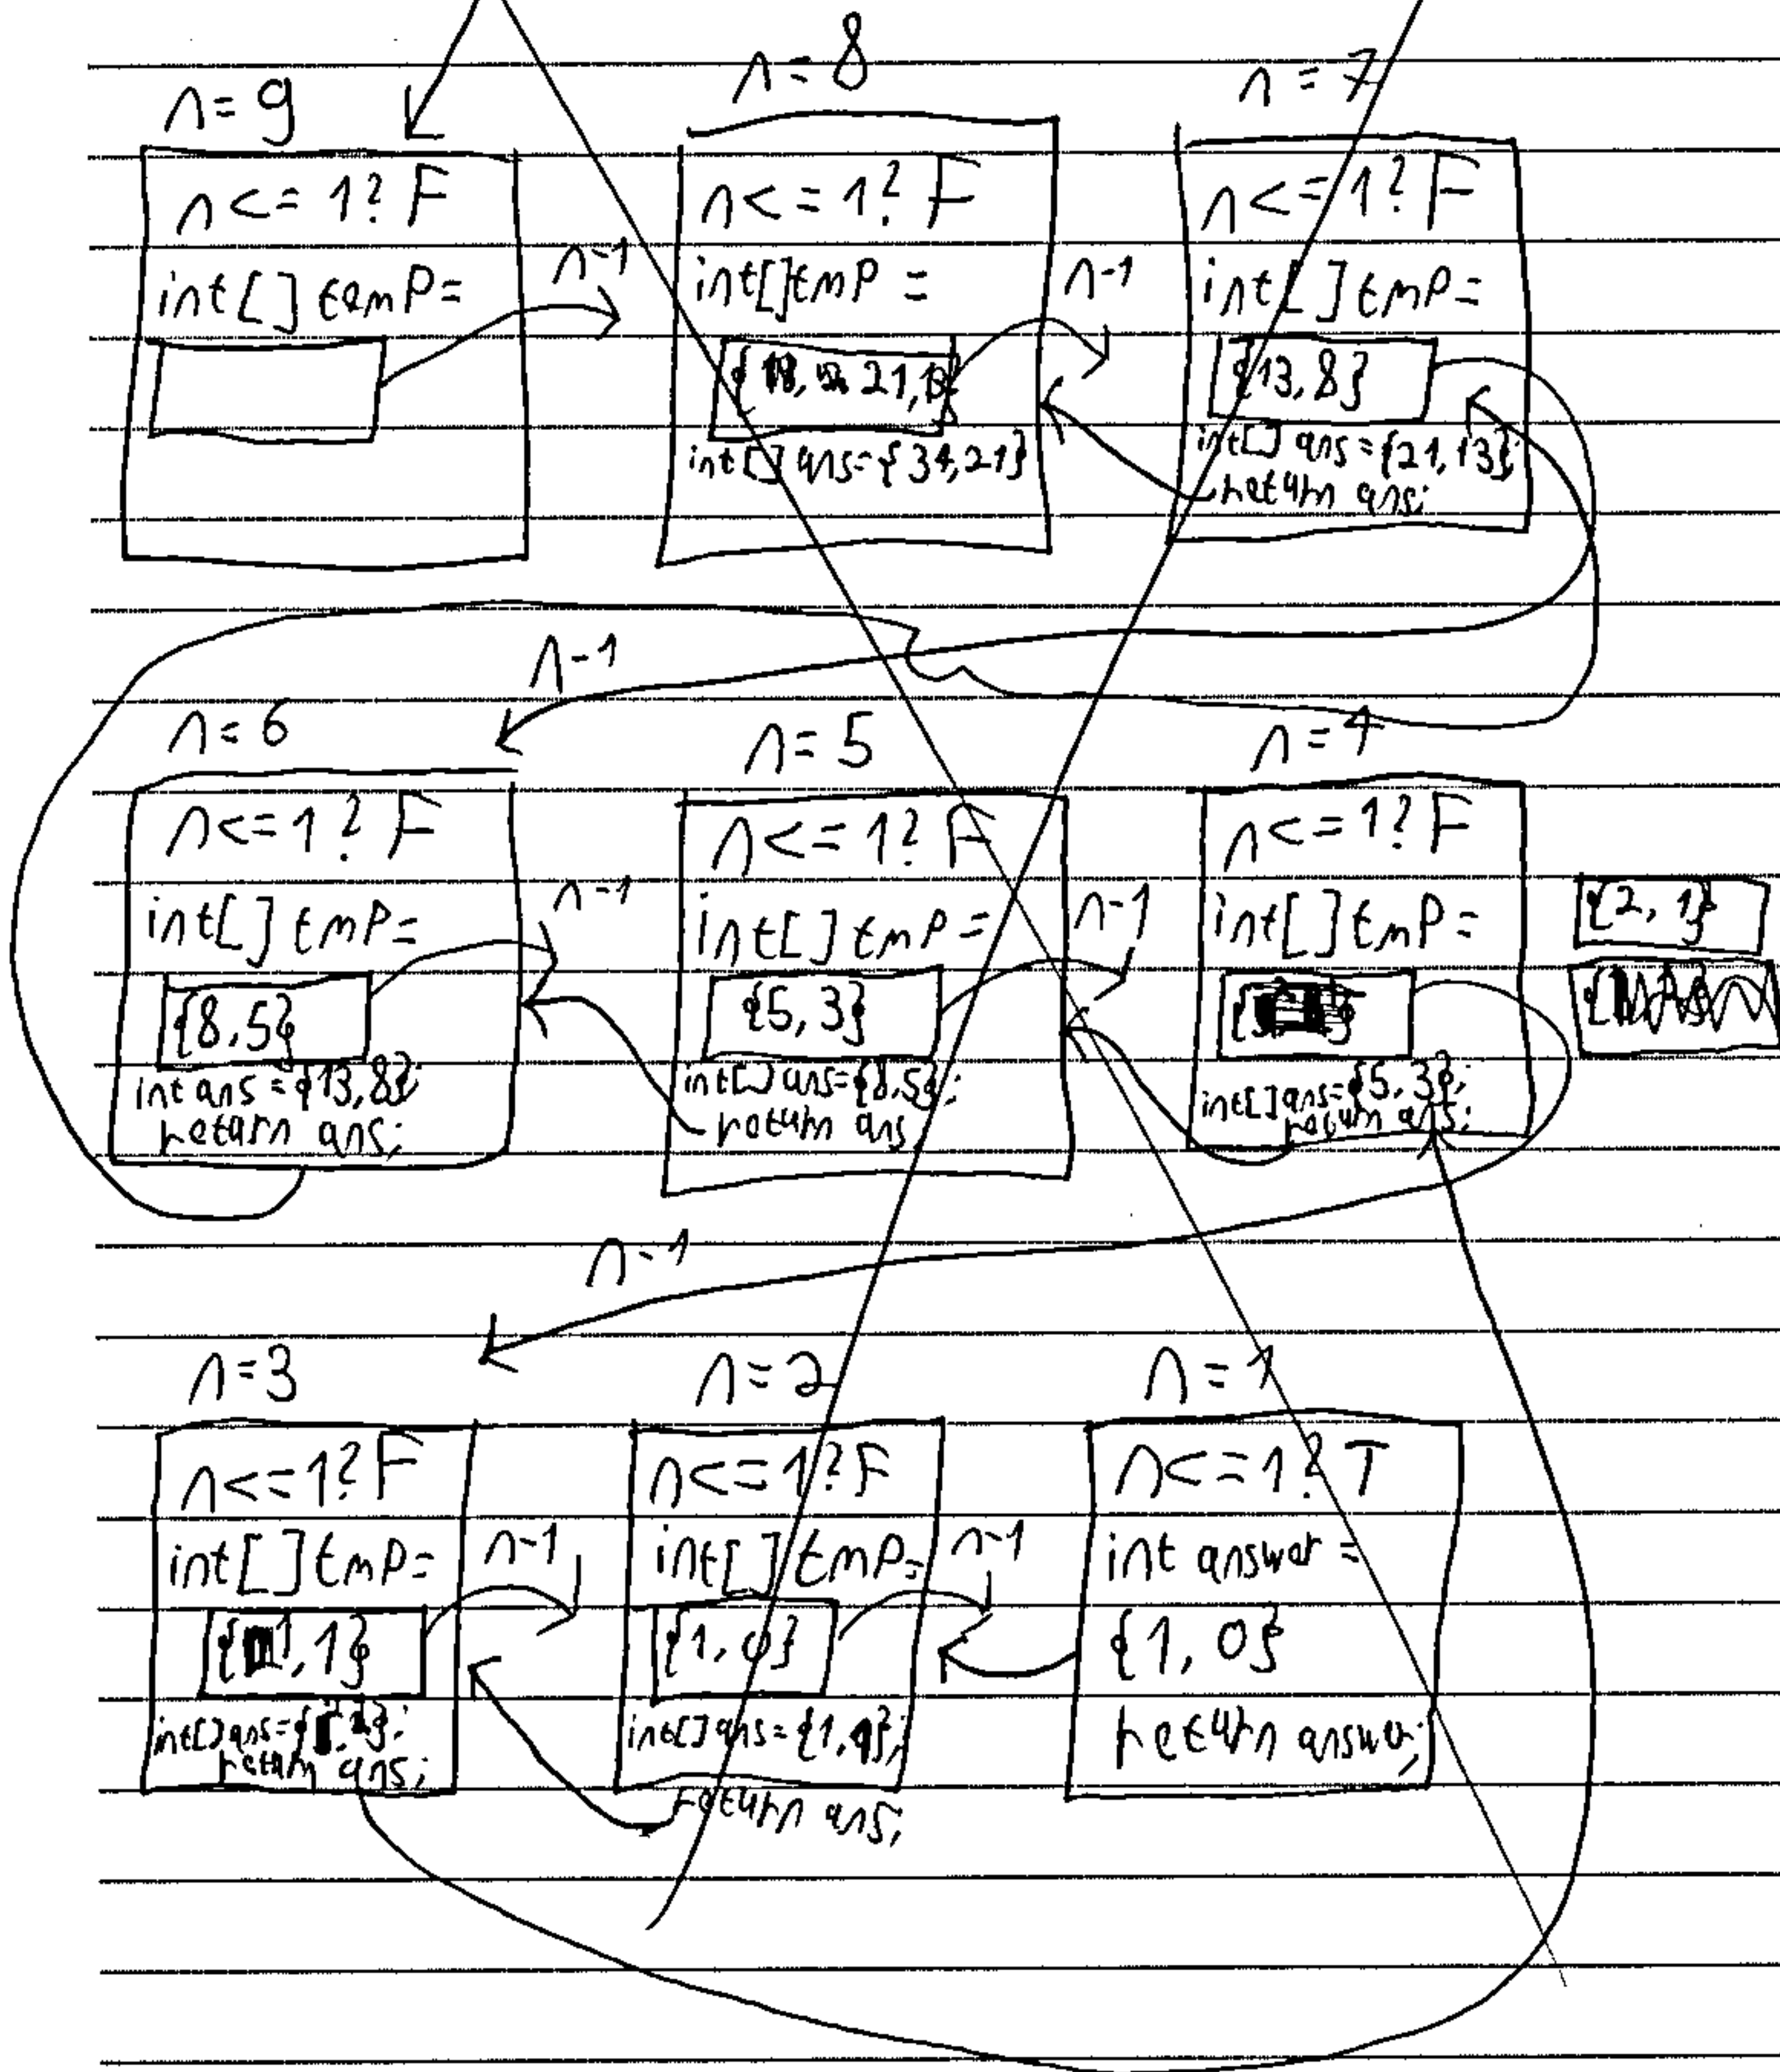 n=9
n<=1? F
int[] temp=
n-1
n=8
n<=1? F
int[] tmp =
21,
int[] ans={34,21}
n-1
n=7
n<=1? F
int[] tmp=
{13,8}
int[] ans={21,13};
return ans;
n-1
n=6
n<=1? F
int[] tmp=
{8,5}
int ans={13,8};
return ans;
n-1
n=5
n<=1? F
int[] tmp=
{5,3}
int[] ans={8,5};
return ans
n-1
n=4
n<=1? F
int[] tmp=
int[] ans={5,3};
return ans;
{2,1}
n-1
n=3
n<=1? F
int[] tmp=
{1,1}
int[] ans=
return ans;
n-1
n=2
n<=1? F
int[] tmp=
{1,0}
int[] ans={1,1};
return ans;
n-1
n=1
n<=1? T
int answer =
{1,0}
return answer;